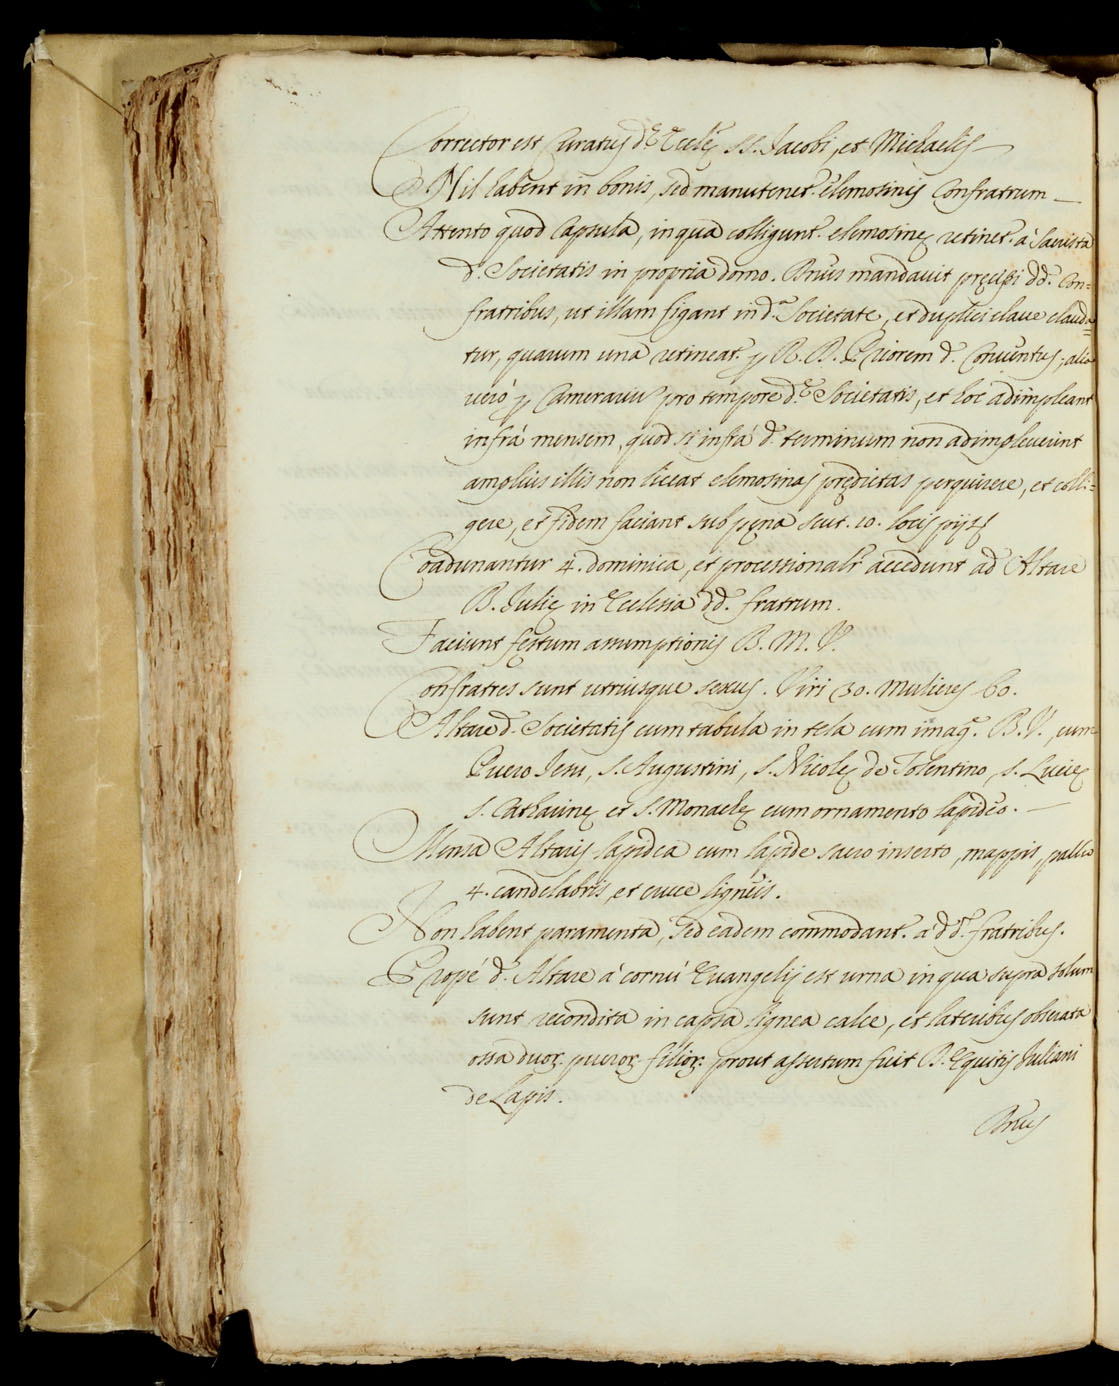 Corrector est Curatus d.ę Ecclę SS. Jacobi, et Michaelis
Nil habent in bonis, sed manutenet.r elemosinis Confratrum
Attento quod Capsula, in qua colligunt.r elemosinę retinet.r à Sacrista
d.ę Societatis in propria domo. Ill͂mus mandavit pręcipi dd. Con=
fratribus, ut illam figant in d.ª Societate, et duplici clave clauda=
tur, quarum una retineat.r p R. P. Priorem d. Conventus, alia
verò p Camerariũ pro tempore d.ę Societatis, et hoc adimpleant
infrà mensem, quod si infrà d. terminum non adimpleverint
amplius illis non liceat elemosinas prędictas perquirere, et colli=
gere, et fidem faciant sub pęna scut. 10. locis pijs
Coadunantur 4. dominica, et processionalr accedunt ad Altare
B. Julię in Ecclesia dd. fratrum.
Faciunt festum assumptionis B. M. V.
Confratres sunt utriusque sexus. Viri 30. Mulieres 60.
Altare d. Societatis cum tabula in tela cum imag.e B. V., cum
Puero Jesu, S. Augustini, S. Nicolę de Tolentino, S. Lucię
S. Catharinę et S. Monachę cum ornamento lapideo.
Mensa Altaris lapidea cum lapide sacro inserto, mappis, pallio
4. candelabris, et cruce ligneis.
Non habent paramenta, sed eadem commodant.r à dd. fratribus.
Propè d. Altare à cornù Evangelij est urna in qua supra solum
sunt recondita in capsa lignea calce, et lateribus obserata
ossa duor. pueror. filior. prout assertum fuit B. Equitis Juliani
de Lapis.